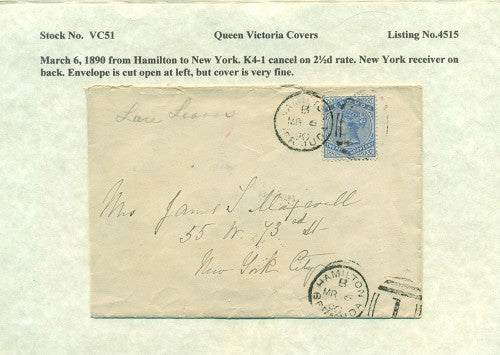 Stock No. VC51 Queen Victoria Covers Listing No.4515
March 6, 1890 from Hamilton to New York. K4-1 cancel on 2½d rate. New York receiver on
back. Envelope is cut open at left, but cover is very fine.
HAMILTON
B
MR 6
90
BERMUDA
Mrs James S Maxwell
55 W. 73rd St
New York City
HAMILTON
B
MR 6
90
BERMUDA
1